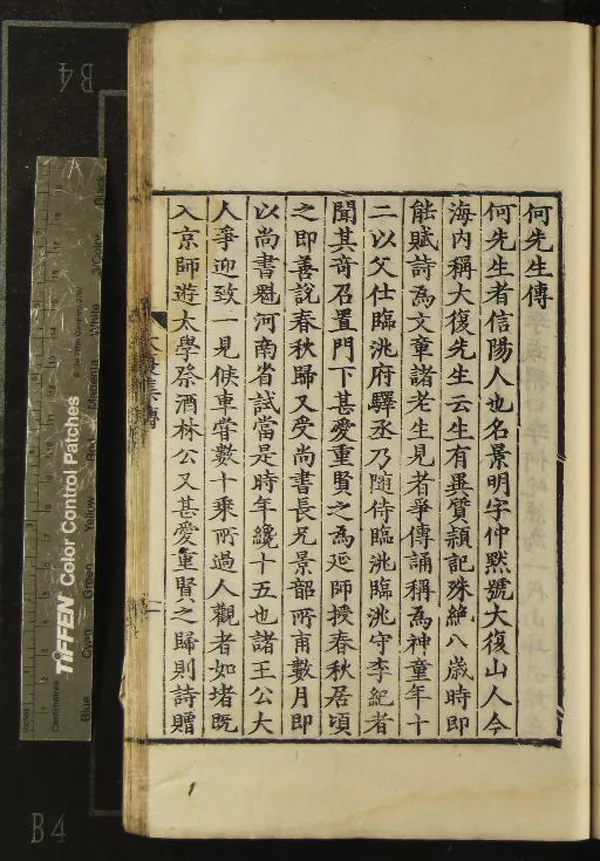 何先生傳
何先生者信陽人也名景明字仲默號大復山人今
海内稱大復先生云生有異質穎記殊絶八歳時即
能賦詩爲文章諸老生見者爭傳誦稱爲神童年十
二以父仕臨洮府驛丞乃随侍臨洮臨洮守李紀者
聞其奇召置門下甚愛重賢之爲延師授春秋居頃
之即善説春秋歸又受尚書長兄景韶所甫數月即
以尚書魁河南省試當是時年纔十五也諸王公大
人爭迎致一見候車甞數十乘所過人觀者如堵既
入京師遊太學祭酒林公又甚愛重賢之歸則詩贈
大復集傳
一
B4
B4
TIFFEN Color Control Patches
Centimetres
Blue
Cyan
Green
Yellow
Red
Magenta
White
3/Color
Black
1